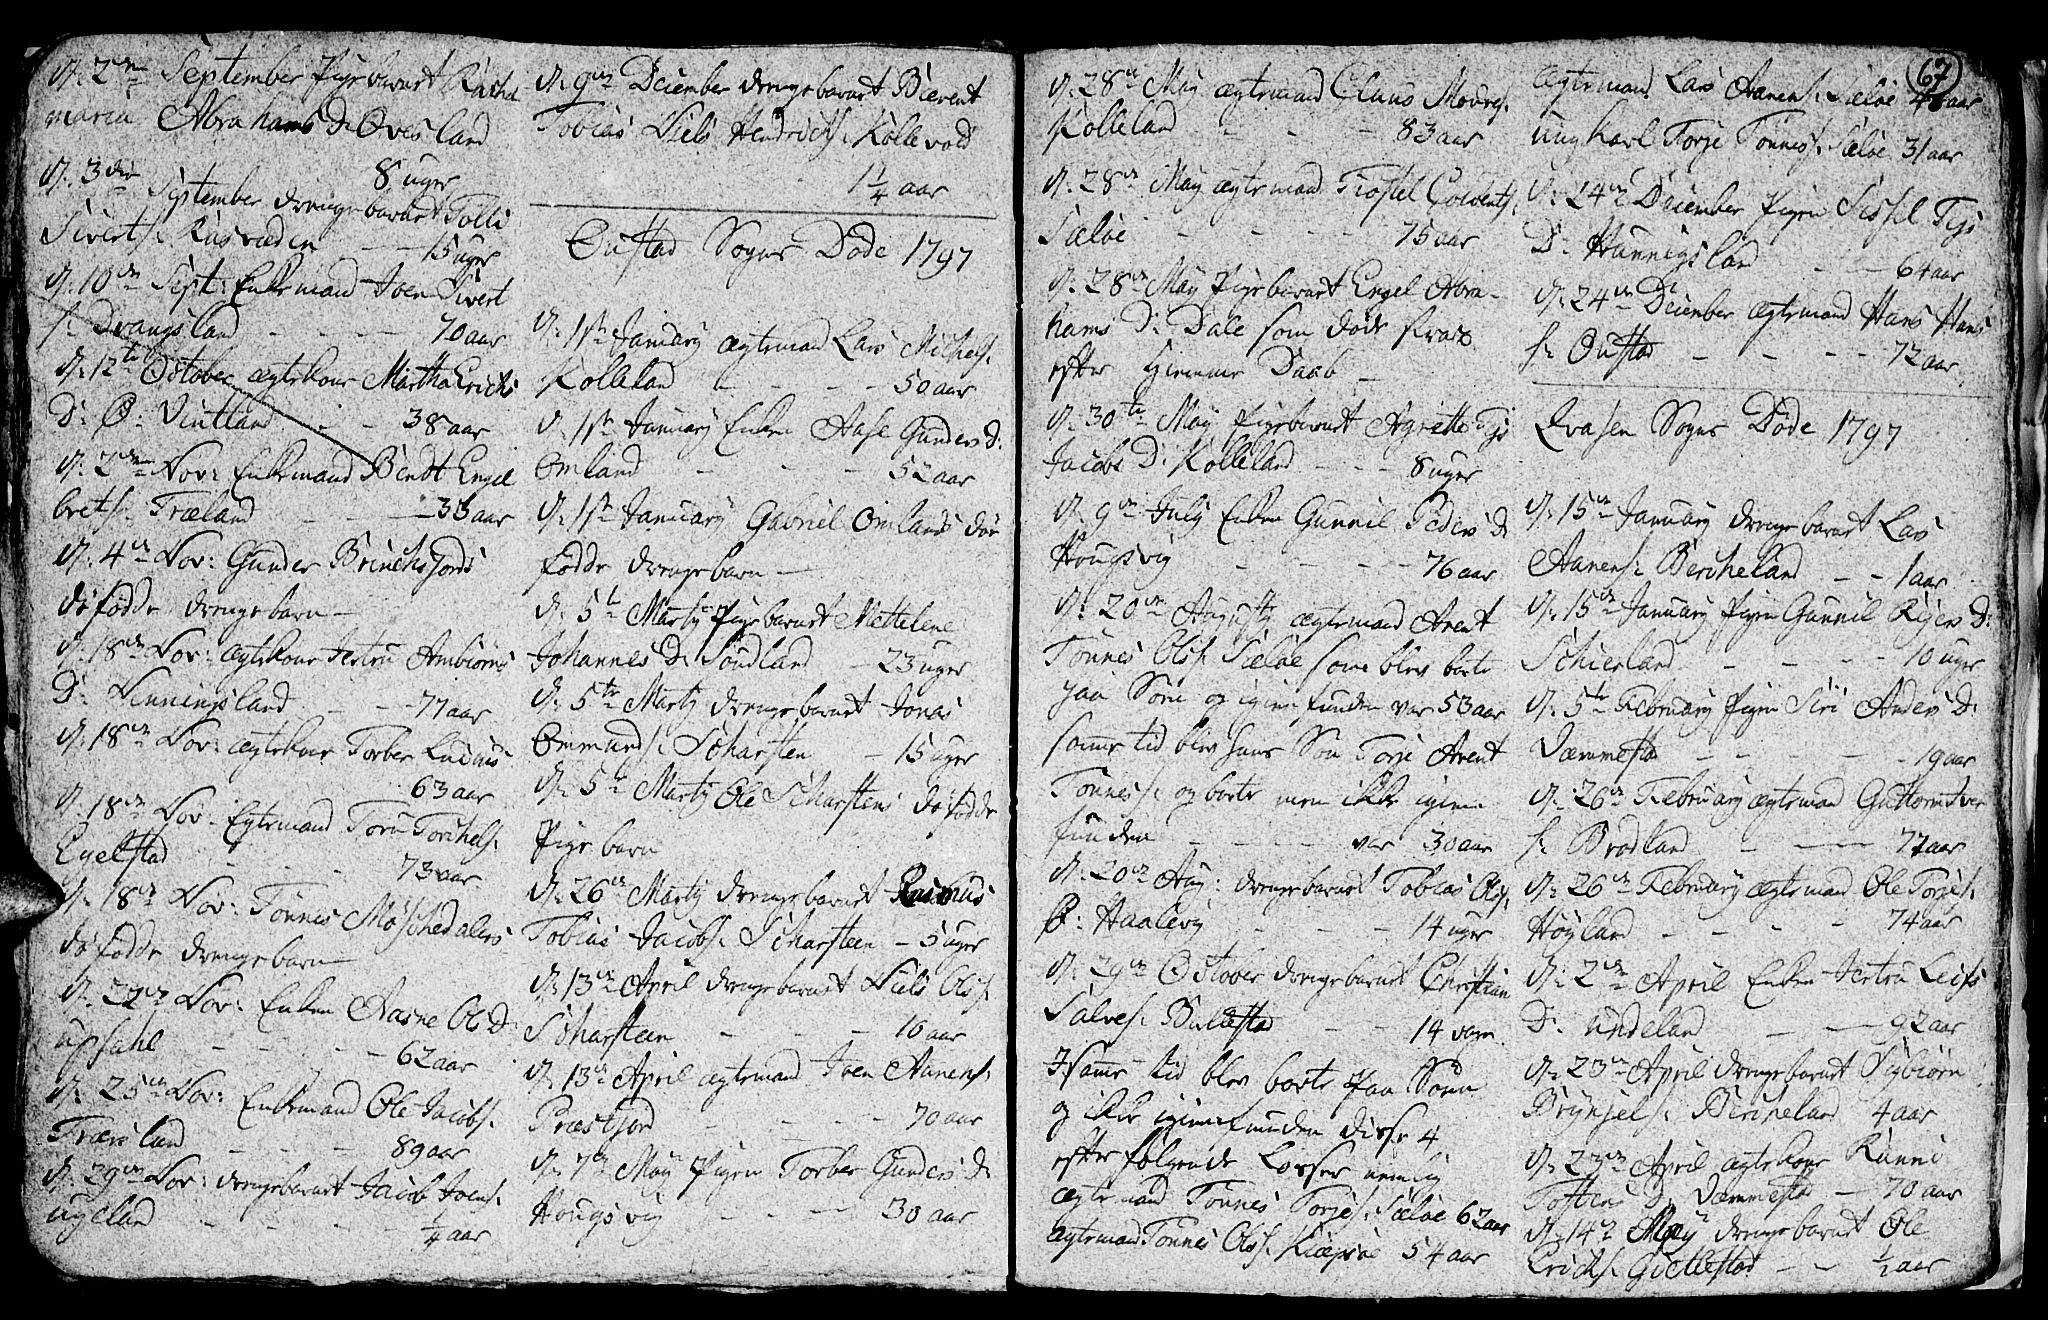 d: 2den September Pigebarnet Rachel
maria Abrahams D: Øvesland
8 uger
d: 3die September drengebarnet Tolli
Siverts: Røsvaden - - 15 uger
d: 10de Sept: Enkemand Joen Sivert
s: Drangsland - - - 70 aar
d: 12te October ægtekone Martha Erichs
D: Ø: Vintland - - 38 aar
d: 2den Nov: Enkemand Bendt Engel
brets: Træland - - - 33 aar
d: 4de Nov: Gunder Brinchsjords
døfødde drengebarn -
d: 18de Nov: ægtekone Jertru Ambiørns
D: Nenningsland - - - 77 aar
d: 18de Nov: ægtekone Torber
63 aar
d: 18de Nov: Egtemand Toru Torchels:
Egelstad - - - 73 aar
d: 18de Nov: Tønnes Møschedalens
døfødde drengebarn -
d: 22de Nov: Enken Aasne Ols D:
upsahl - - - - 62 aar
d: 25de Nov: Enkemand Ole Jacobs:
Træland - - - 89 aar
d: 29de Nov: drengebarnet Jacob Joens:
ugeland - - - - 1/4 aar
d: 9de December drengebarnet Bærent
Tobias Niels Hendrichs: Kollevold
1 1/4 aar
Oustad Sogns Døde 1797
d: 1ste January ægtemand Lars Michels:
Kolleland - - - - 50 aar
d: 1ste January Enken Aase Gunders D:
Omland - - - - 52 aar
d: 1ste January Gabriel Omlands dø
fødde drengebarn -
d: 5te Marty Pigebarnet Mettelene
Johannes D: Sundland - 23 uger
d: 5te Marty drengebarnet Jonas
Ommunds: Scharsteen - 15 uger
d: 5te Marty Ole Scharstens døfødde
Pige barn
d: 26de Marty drengebarnet Rasmus
Tobias Jacobs: Scharsteen - 5 uger
d: 13de April drengebarnet Niels Ols:
Scharsteen - - - 10 aar
d: 13de April ægtemand Joen Aanens:
Præstjord - - - - 70 aar
d: 7de May Pigen Torber Gunders D:
Hougsvig - - - - 30 aar
d: 28de May ægtemand Claus Moures:
Kolleland - - - 83 aar
d: 28de May ægtemand Tiostel Goverts:
Sæløe - - - - 75 aar
d: 28de May Pigebarnet Engel Abra-
hams D: Dale som døde strax
efter Hiemme Daab -
d: 30te May Pigebarnet Agnethe Tys
Jacobs D: Kolleland - - - 8 uger
d: 9de July Enken Gunnil Peders D:
Hougsvig - - - - 76 aar
d: 20de Augusty ægtemand Arent
Tønnes Ols: Sæløe som blev borte
paa Søen og igien funden var 53 aar
samme tid blev hans Søn Torje Arent
Tønnes: og borte men ikke igien
funden - - - - var 30 aar
d: 20de Aug: drengebarnet Tobias Ols:
Ø: Haalevig - - - 14 uger
d: 29de October drengebarnet Christian
Salves: Bullestad - - 14 dage
I samme tid blev borte paa Søen
og ikke igien funden disse 4
efter følgende Losser nemlig
ægtemand Tønnes Torjes: Sæløe 62 aar
ægtemand Tønnes Ols: Kirkøe 54 aar
67
ægtemand Lars Aanens: Sæløe 48 aar
ungkarl Torje Tønnes: Sæløe 31 aar
d: 24de December Pigen Sissel Tys
D: Hannigsland - - 64 aar
d: 24de December ægtemand Hans Hans
s: Oustad - - - - 72 aar
Qvasen Sogns Døde 1797
d: 15de January drengebarnet Lars
Aanens: Bercheland - - 1 aar
d: 15de January Pigen Gunnil Reiers D:
Schierland - - - - 10 uger
d: 5te February Pigen Siri Anders D:
Væmmestad - - - - 19 aar
d: 26de February ægtemand Guttorm Iver
s: Brødland - - - 77 aar
d: 26de February ægtemand Ole Torjes:
Høyland - - - - 74 aar
d: 2den April Enken Jertru Leifs
D: undeland - - - 92 aar
d: 23de April drengebarnet Sigbiørn
Brynjels: Bercheland 4 aar
d: 23de April ægtekone Rønni
Tostens D: Væmmestad - 70 aar
d: 14de May drengebarnet Ole
Erichs: Gullestad - - 1/2 aar